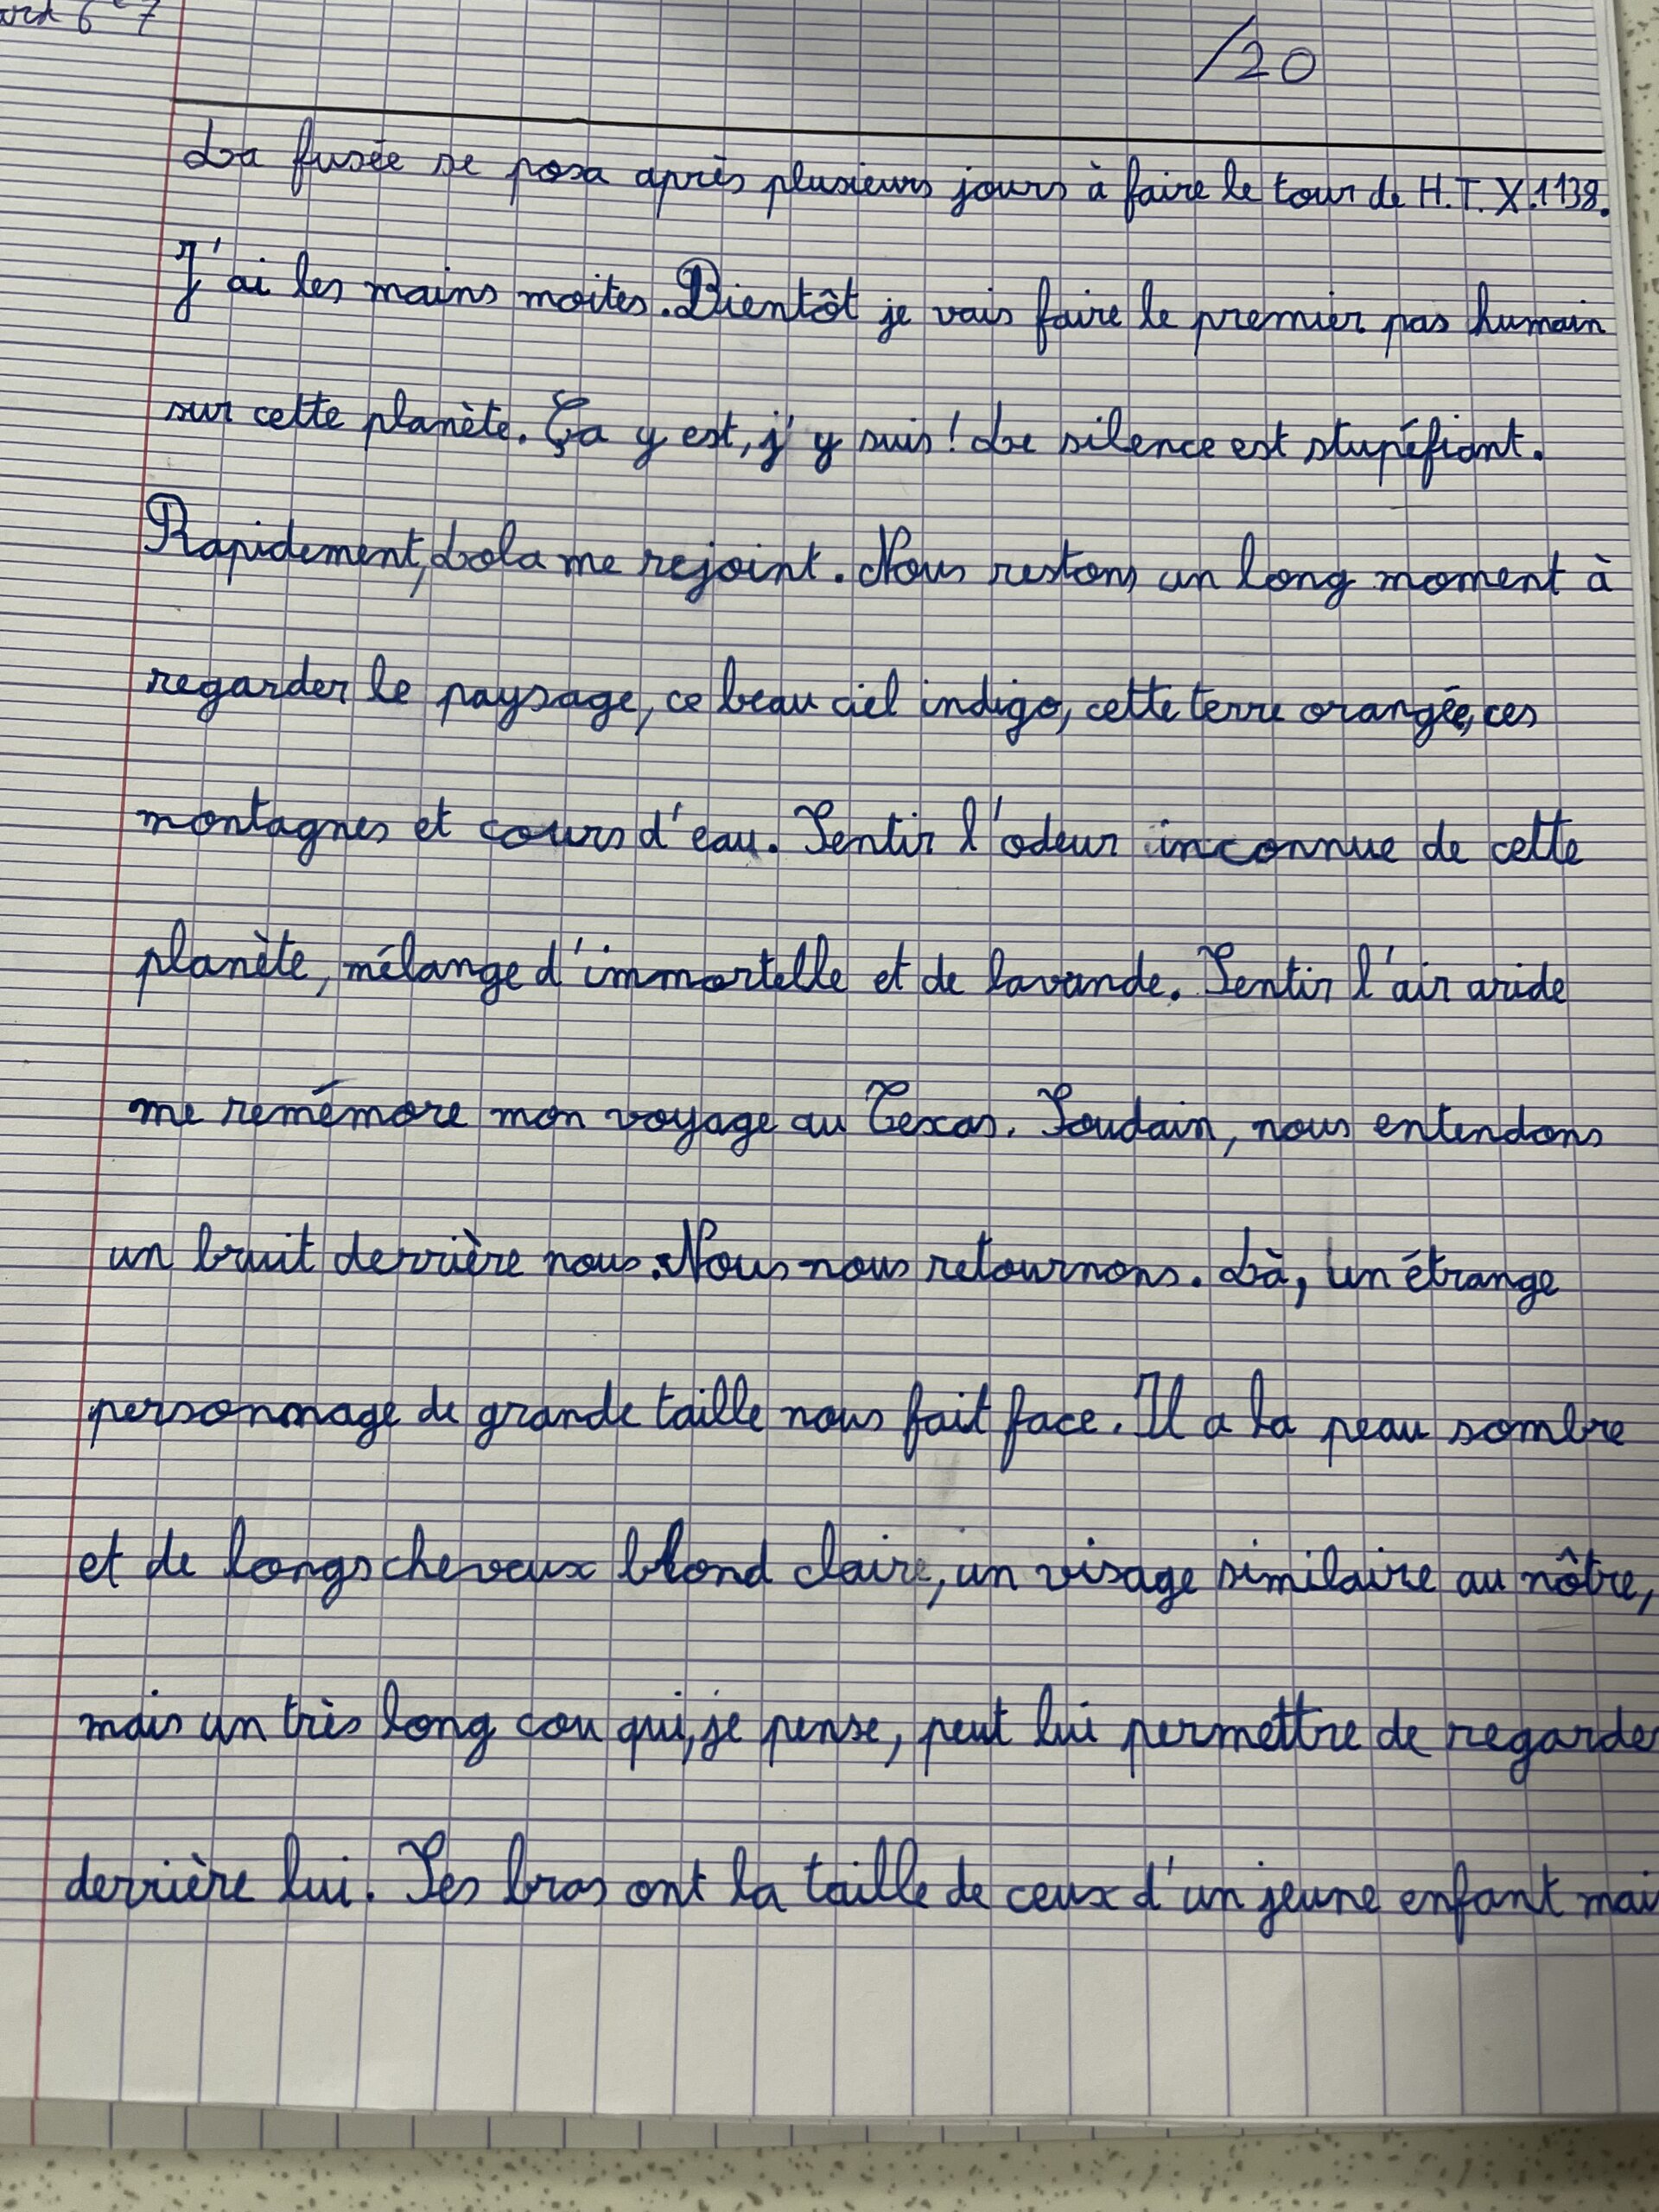 6e7
/20
La fusée se posa après plusieurs jours à faire le tour de H.T.X.1138.
J'ai les mains moites. Bientôt je vais faire le premier pas humain
sur cette planète. Ça y est, j'y suis ! Le silence est stupéfiant.
Rapidement, Lola me rejoint. Nous restons un long moment à
regarder le paysage, ce beau ciel indigo, cette terre orangée, ces
montagnes et cours d'eau. Sentir l'odeur inconnue de cette
planète, mélange d'immortelle et de lavande. Sentir l'air aride
me remémore mon voyage au Texas. Soudain, nous entendons
un bruit derrière nous. Nous nous retournons. Là, un étrange
personnage de grande taille nous fait face. Il a la peau sombre
et de longs cheveux blond claire, un visage similaire au nôtre,
mais un très long cou qui, je pense, peut lui permettre de regarder
derrière lui. Ses bras ont la taille de ceux d'un jeune enfant mai